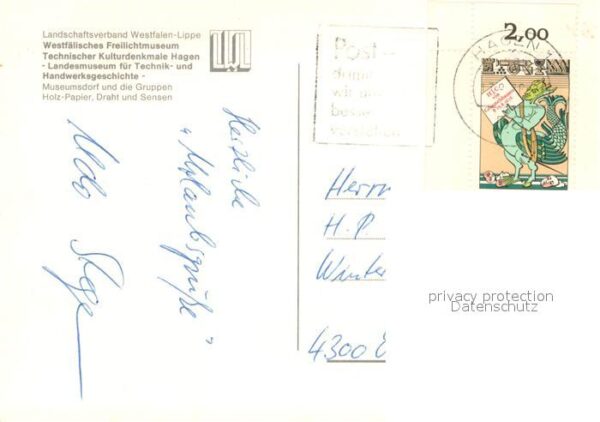 Landschaftsverband Westfalen-Lippe
Westfälisches Freilichtmuseum
Technischer Kulturdenkmale Hagen
- Landesmuseum für Technik- und
Handwerksgeschichte -
Museumsdorf und die Gruppen
Holz-Papier, Draht und Sensen
Herzliche
"Urlaubsgrüße"
Udo
Post-
damit
wir uns
besser
verstehen
2,00
HAGEN 1
Herrn
H. P.
Winter
4300 E
privacy protection
Datenschutz